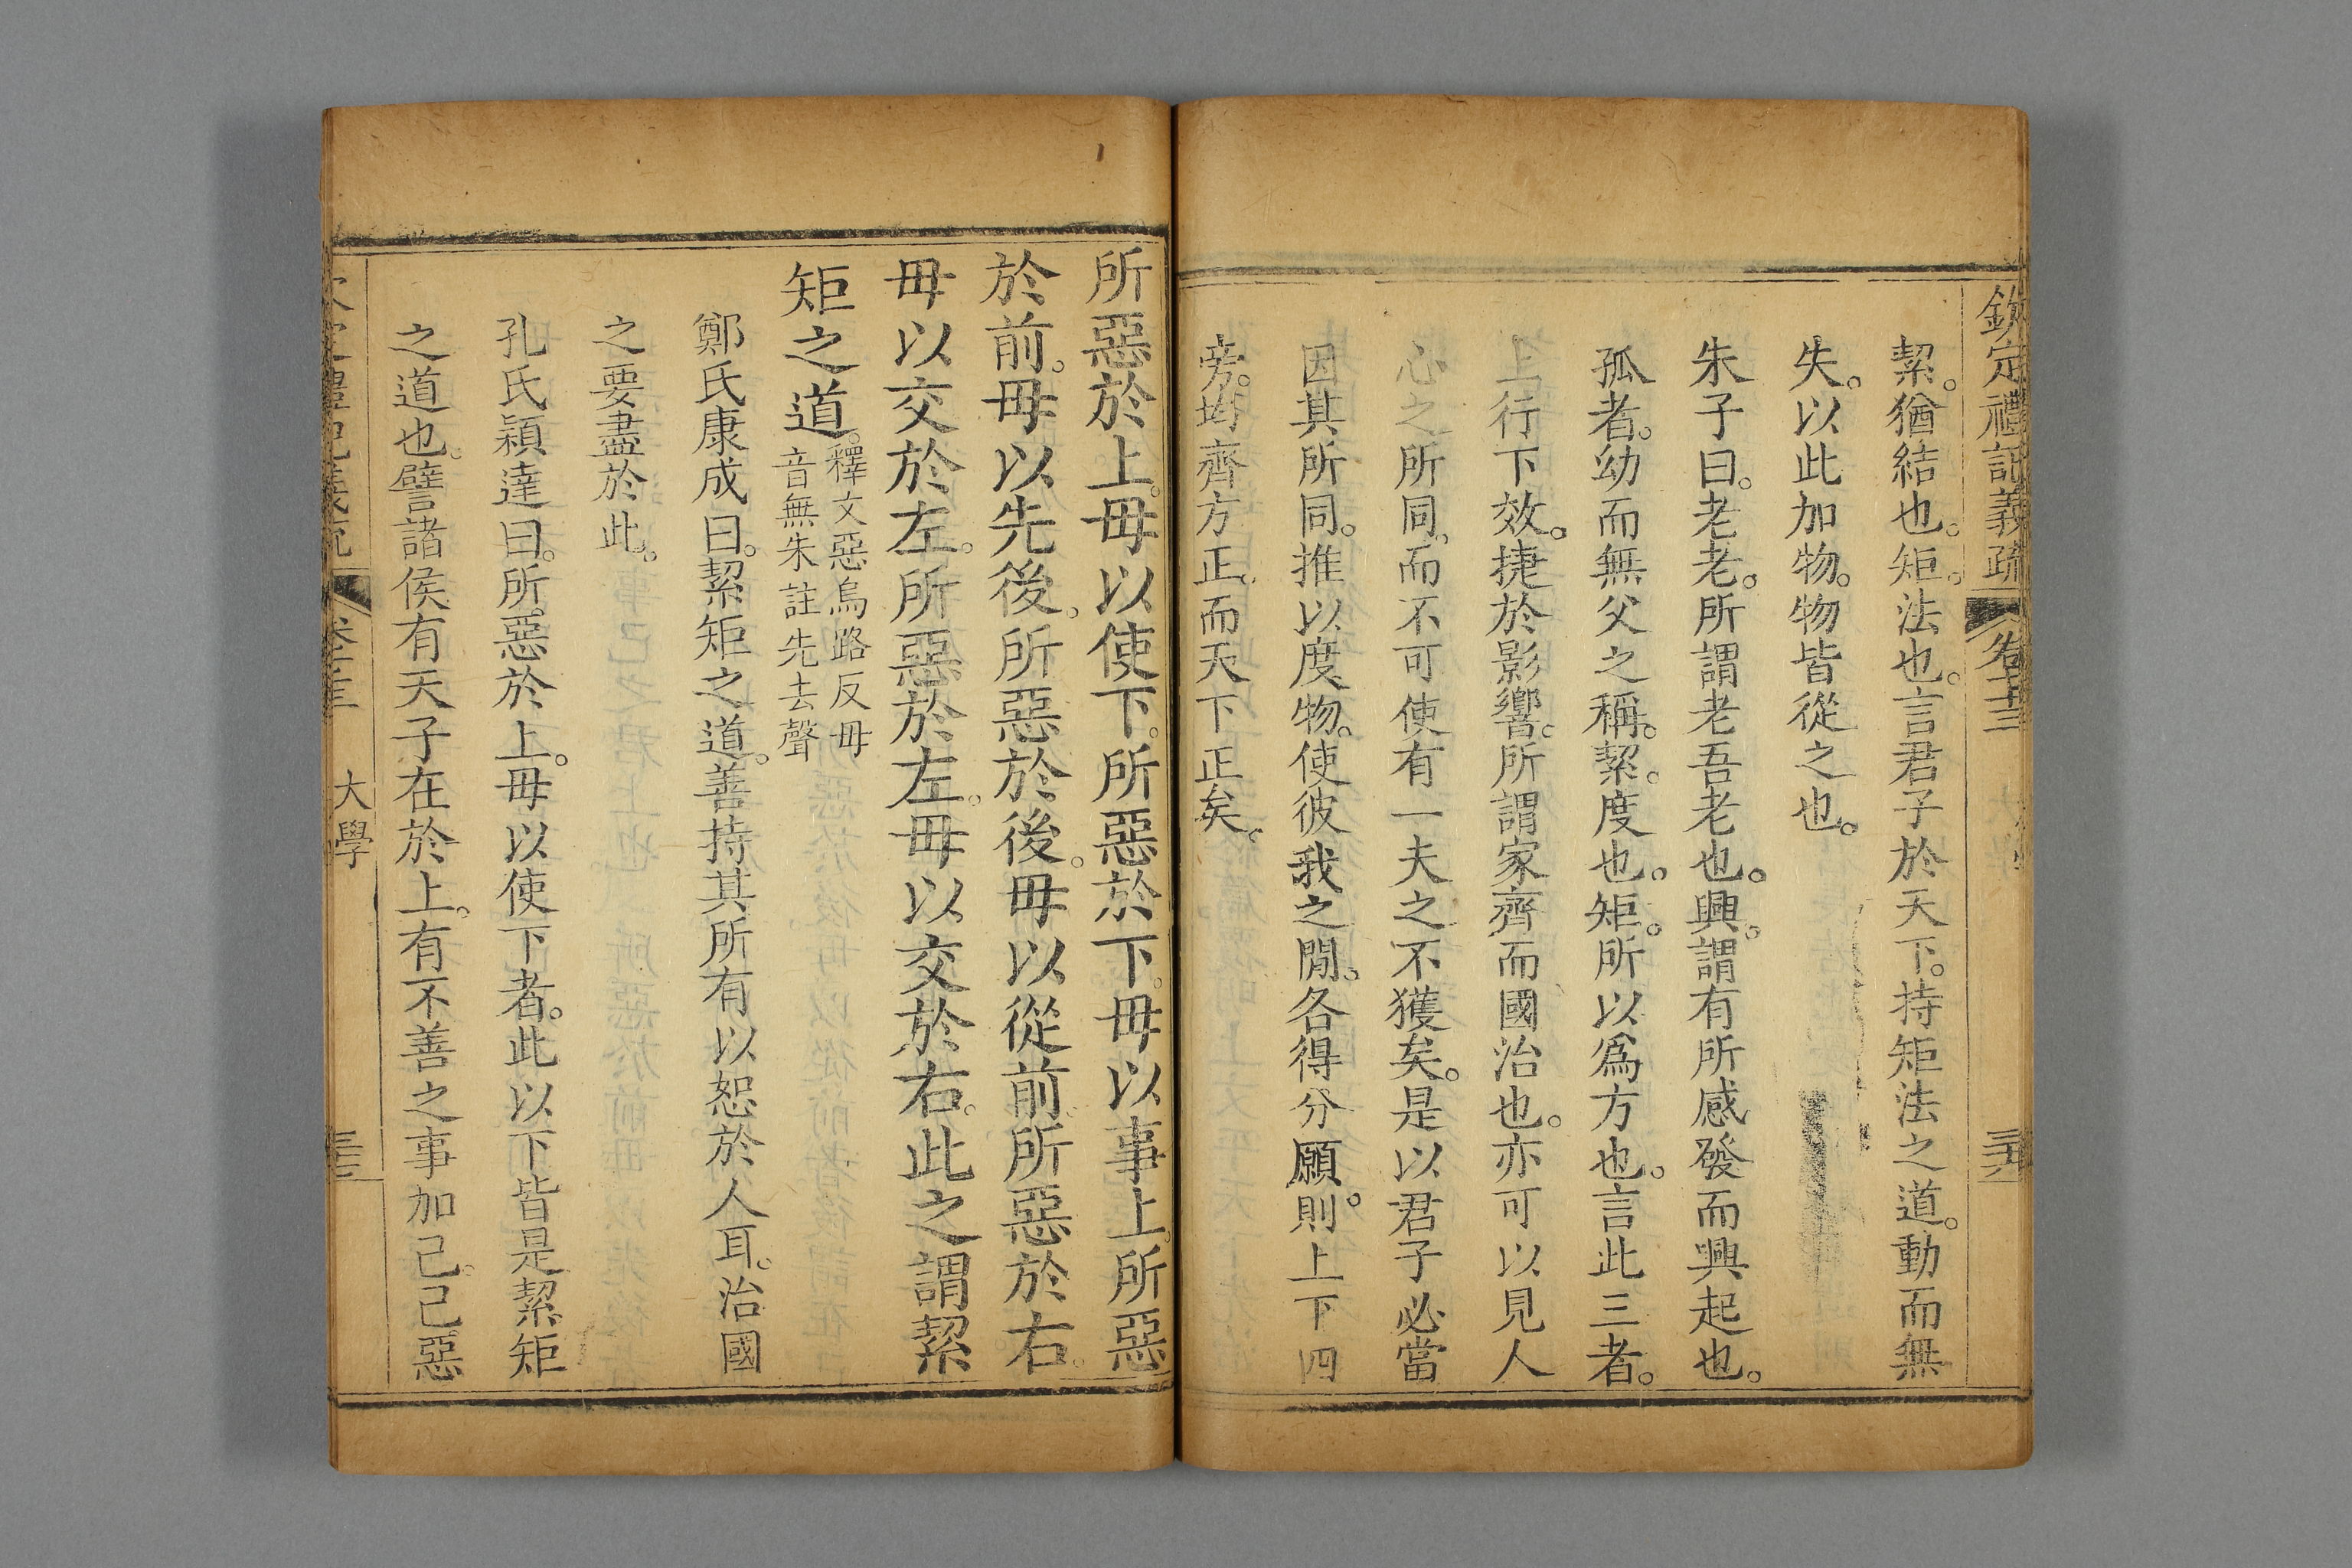 欽定禮記義疏 卷七十三
絜。猶結也。矩。法也。言君子於天下。持矩法之道。動而無
失。以此加物。物皆從之也。
朱子曰。老老。所謂老吾老也。興。謂有所感發而興起也。
孤者。幼而無父之稱。絜。度也。矩。所以爲方也。言此三者。
上行下效。捷於影響。所謂家齊而國治也。亦可以見人
心之所同。而不可使有一夫之不獲矣。是以君子必當
因其所同。推以度物。使彼我之閒。各得分願。則上下四
旁。均齊方正。而天下正矣。
所惡於上。毋以使下。所惡於下。毋以事上。所惡
於前。毋以先後。所惡於後。毋以從前。所惡於右。
毋以交於左。所惡於左。毋以交於右。此之謂絜
矩之道。
釋文惡烏路反毋
音無朱註先去聲
鄭氏康成曰。絜矩之道。善持其所有以恕於人耳。治國
之要盡於此。
孔氏穎達曰。所惡於上。毋以使下者。此以下皆是絜矩
之道也。譬諸侯有天子在於上。有不善之事加己。己惡
大學